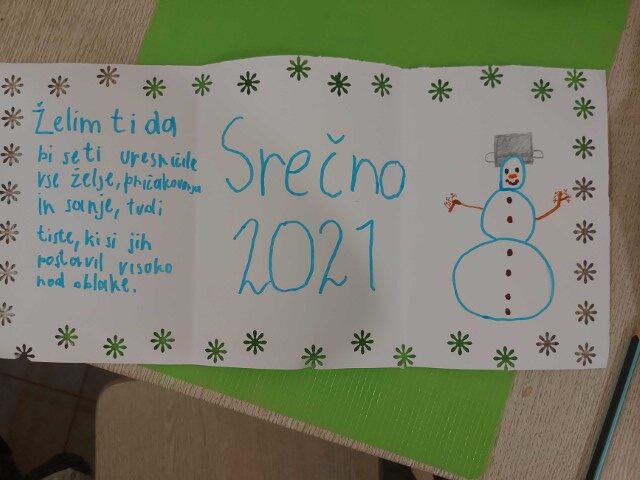 Želim ti da
bi se ti uresničile
vse želje, pričakovanja
in sanje, tudi
tiste, ki si jih
postavil visoko
nad oblake.
Srečno
2021